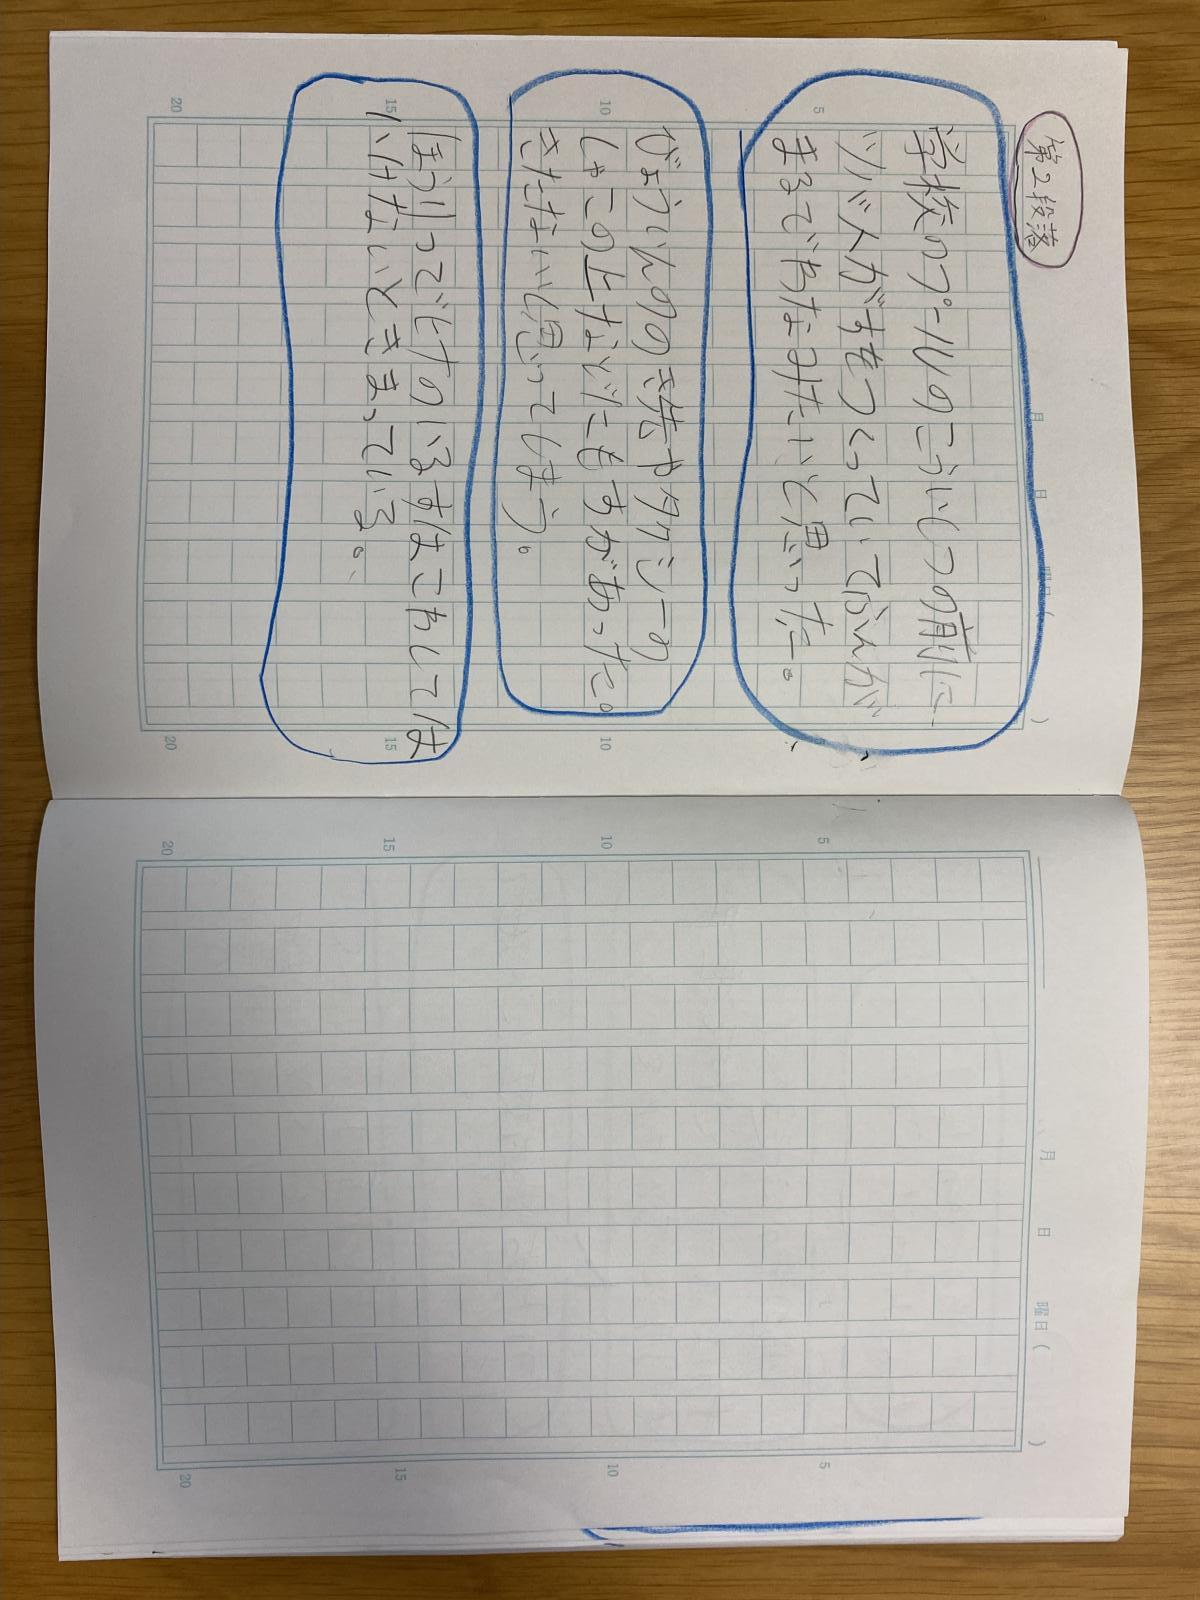 第2段落
学校のプールのこういしつの前に
ツバメがすをつくっていてふんが
まるでわなみたいと思った。
びょういんのの き先やタクシーの
しゃこの上などにもすがあった。
きたないと思ってしまう。
ほうりつでけのいるすはこわしては
いけないときまっている。
月 日 曜日( )
5
10
15
20
5
10
15
20
月 日 曜日( )
5
10
15
20
5
10
15
20